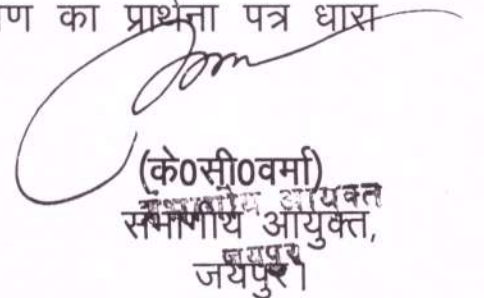 ण का प्रार्थना पत्र धारा
(के0सी0वर्मा)
संभागीय आयुक्त
संभागीय आयुक्त,
जयपुर
जयपुर।